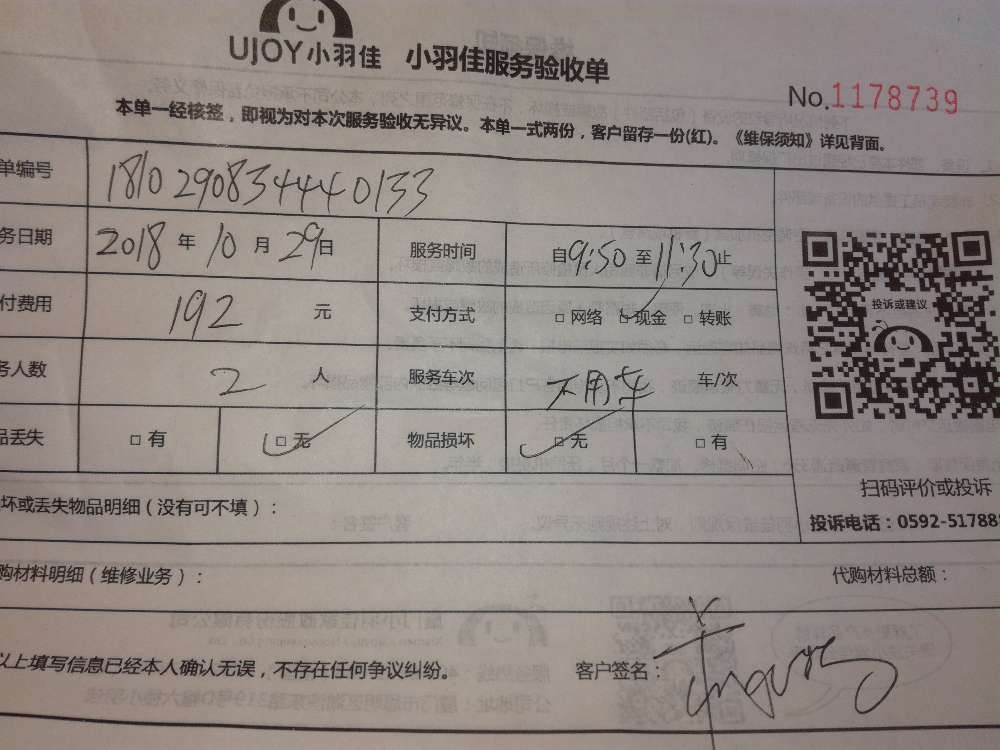 UJOY小羽佳 小羽佳服务验收单
No.1178739
本单一经核签，即视为对本次服务验收无异议。本单一式两份，客户留存一份(红)。《维保须知》详见背面。
单编号 1810290834440133
务日期 2018 年 10 月 29 日 服务时间 自9:50 至 11:30止
付费用 192 元 支付方式 □ 网络 □ 现金 □ 转账
务人数 2 人 服务车次 不用车 车/次
品丢失 □ 有 □ 无 物品损坏 □ 无 □ 有
投诉或建议
扫码评价或投诉
投诉电话：0592-51788
坏或丢失物品明细（没有可不填）：
购材料明细（维修业务）： 代购材料总额：
以上填写信息已经本人确认无误，不存在任何争议纠纷。 客户签名：